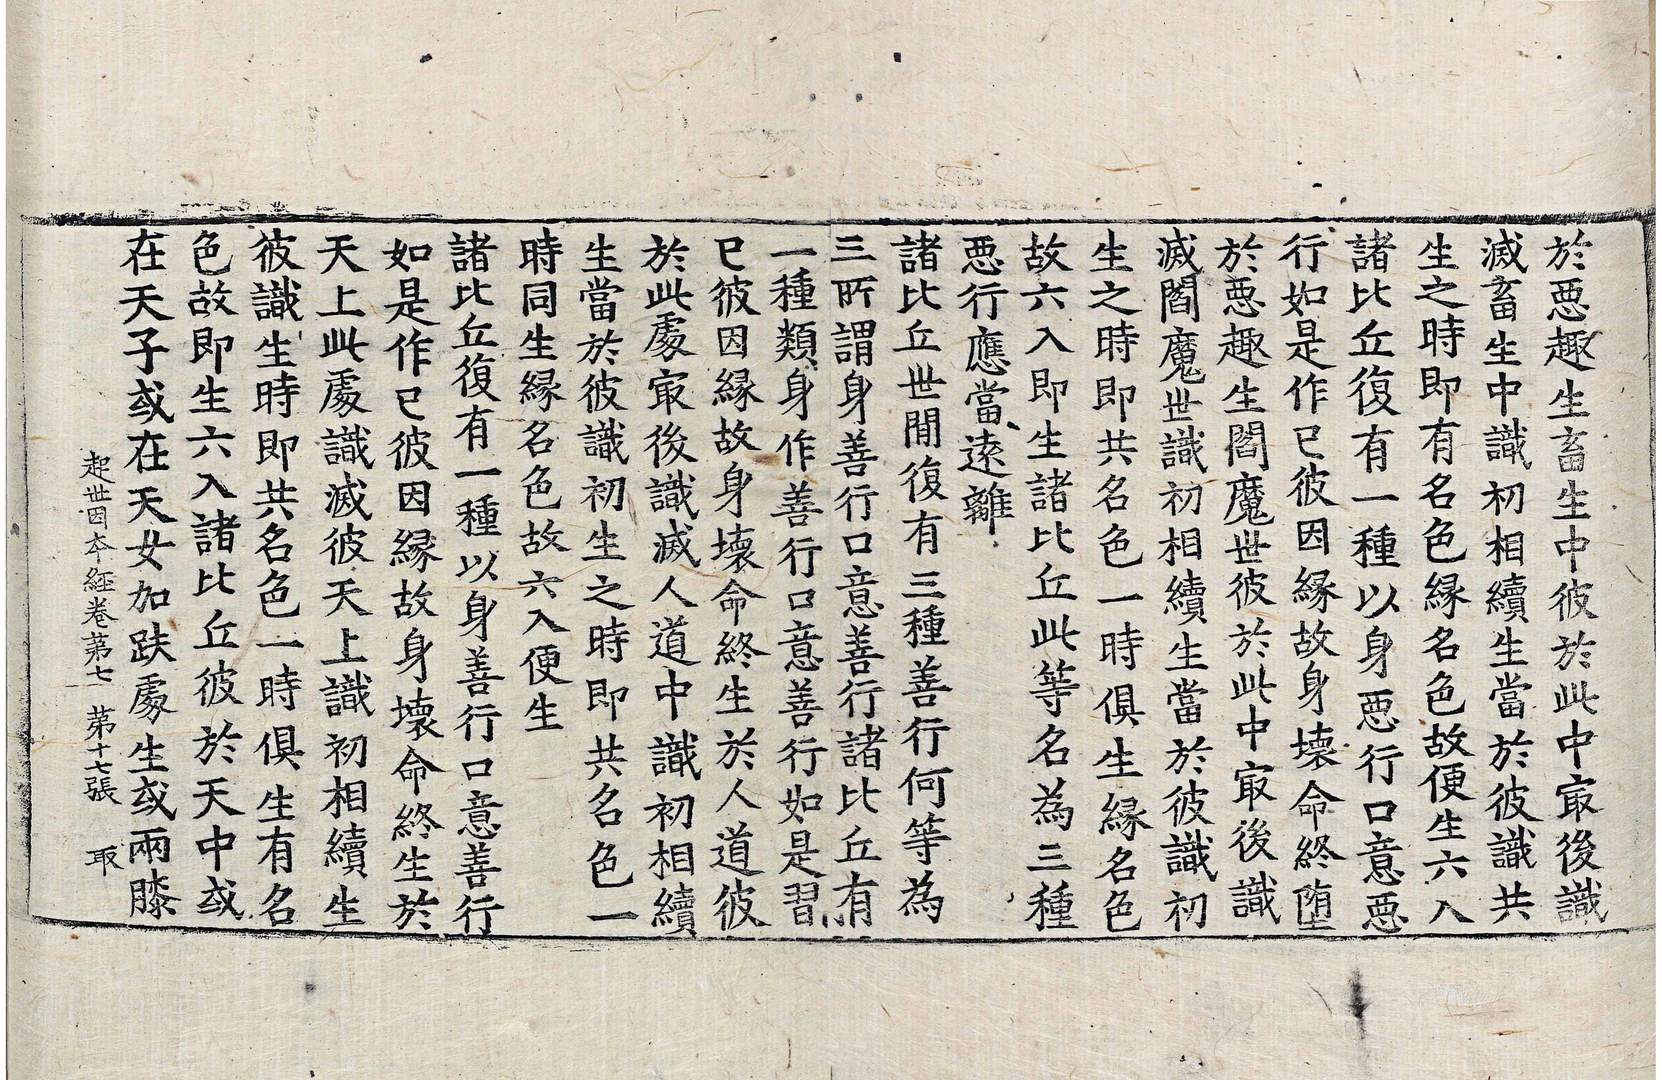 於惡趣生畜生中彼於此中㝡後識
滅畜生中識初相續生當於彼識共
生之時即有名色縁名色故便生六入
諸比丘復有一種以身惡行口意惡
行如是作已彼因縁故身壞命終堕
於惡趣生閻魔世彼於此中㝡後識
滅閻魔世識初相續生當於彼識初
生之時即共名色一時俱生縁名色
故六入即生諸比丘此等名為三種
惡行應當遠離
諸比丘世間復有三種善行何等為
三所謂身善行口意善行諸比丘有
一種類身作善行口意善行如是習
已彼因縁故身壞命終生於人道彼
於此處㝡後識滅人道中識初相續
生當於彼識初生之時即共名色一
時同生縁名色故六入便生
諸比丘復有一種以身善行口意善行
如是作已彼因縁故身壞命終生於
天上此處識滅彼天上識初相續生
彼識生時即共名色一時俱生有名
色故即生六入諸比丘彼於天中或
在天子或在天女加趺處生或兩膝
起世因本經卷第七 第十七張 取